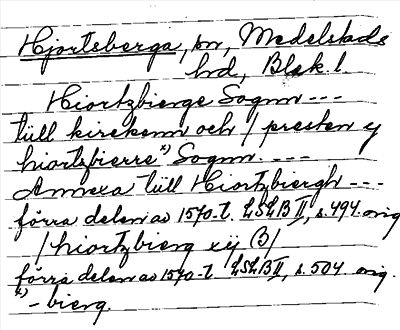 Hjortsberga, sn, Medelstads
hd, Blek. l.
Hiortzbierge Sognn ---
till kirckenn och / presten y
hiortzbierre x) Sognn. ---
Annexa till Hiortzbiergh ---
förra delen av 1570-t. LSLB II, s. 494. orig
/ hiortzbierg xij (3/
förra delen av 1570-t. LSLB II, s. 504. orig.
x) - bierg.